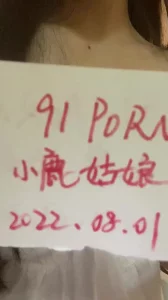 91 PORN
小鹿姑娘
2022.08.01